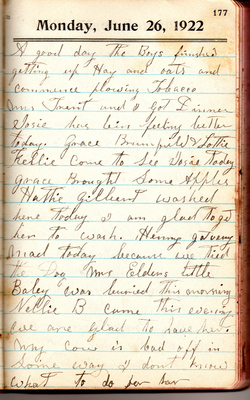 177
Monday, June 26, 1922
A good day the Boys finished
getting up Hay and oats and
commence plowing Tobacco
Mrs Trent and I Got Dinner
Josie has bin feeling better
today. Grace Brumfield & Lottie
Kellie Come to See Josie today
grace Brought Some Apples
Hattie Gilbert washed
here today I am glad to get
her to wash. Henry got very
mad today because we tied
the Dog Mrs Elders little
Baby was buried this morning
Nellie B came this evening
we are Glad to have her.
my cow is bad off in
Some way I dont know
what to do for her